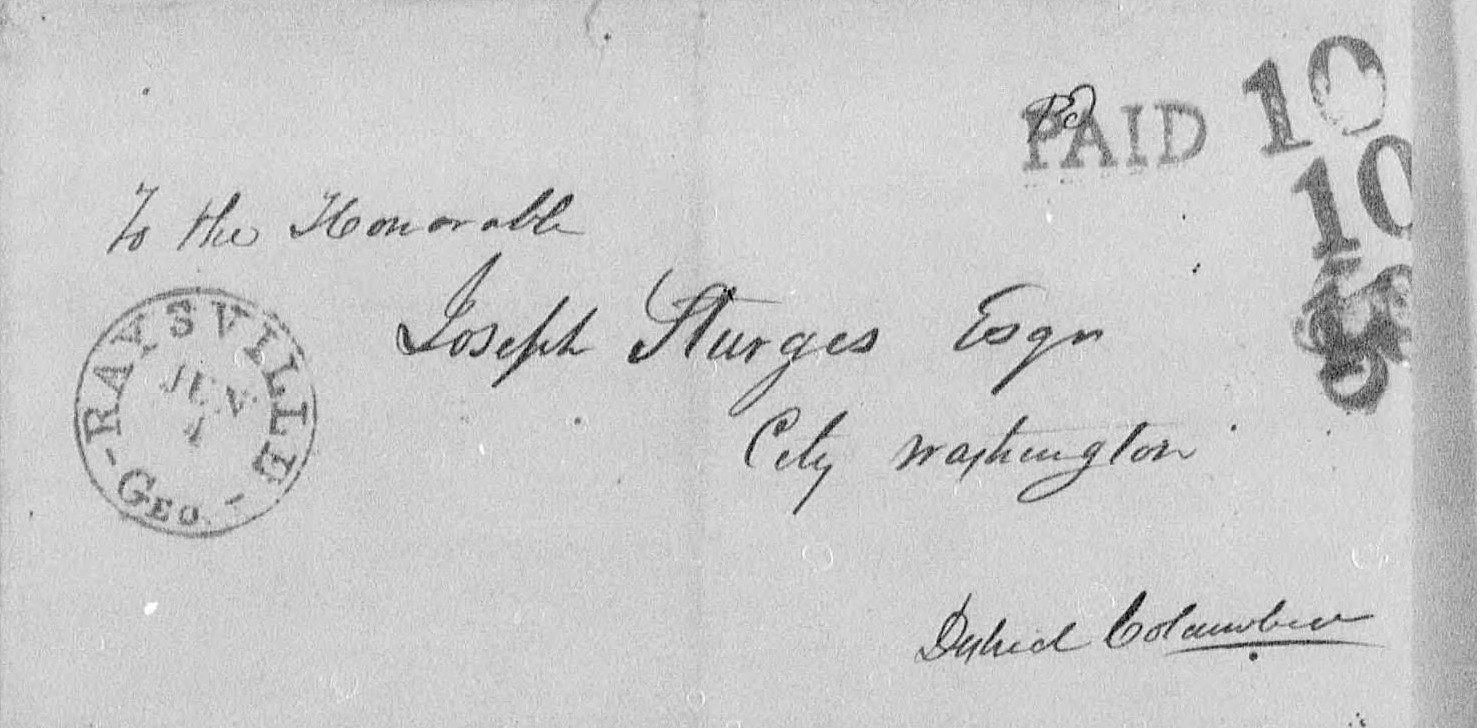 PAID 10
10
10
To the Honorable
Joseph Sturges Esqr
City Washington
District Columbia
RAYSVILLE
JUN
GEO.